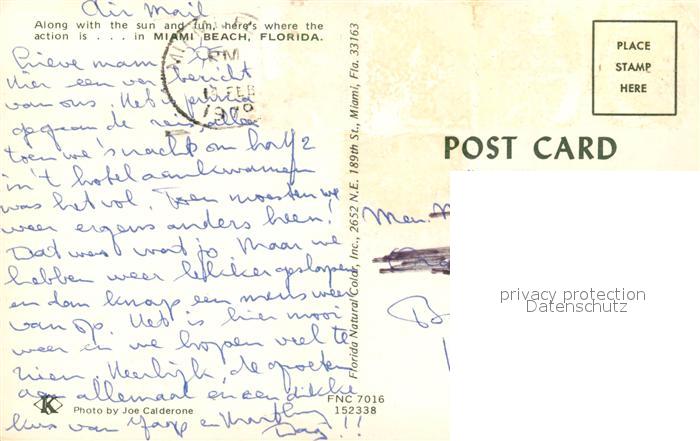 Air Mail
Along with the sun and fun, here's where the
action is . . . in MIAMI BEACH, FLORIDA.
Lieve mam
Hier een ver bericht
van ons. Het is prima
gegaan de reis, alleen
toen we 's nachts om half 2
in 't hotel aankwamen
was het vol. Toen moesten we
weer ergens anders heen!
Dat was wat ja. Maar we
hebben weer lekker geslapen
en dan knap een mens weer
van op. Het is hier mooi
weer en we hopen veel te
zien. Heerlijk, de groeten
aan allemaal en een dikke
kus van Jaap en
Dag!!
Photo by Joe Calderone
PM
FEB
Florida Natural Color, Inc., 2652 N.E. 189th St., Miami, Fla. 33163
FNC 7016
152338
PLACE
STAMP
HERE
POST CARD
privacy protection
Datenschutz